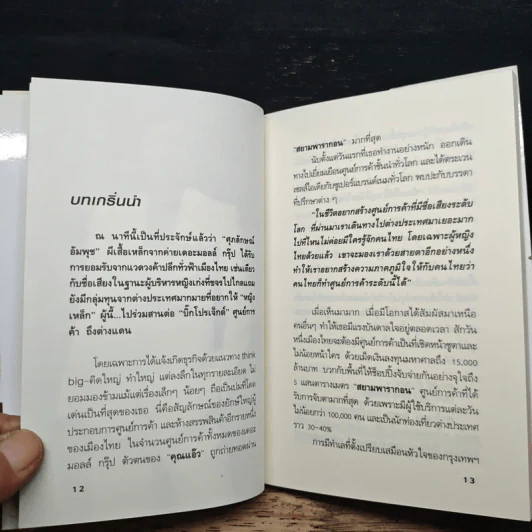 บทเกริ่นนำ
ณ นาทีนี้เป็นที่ประจักษ์แล้วว่า "ศุภลักษณ์
อัมพุช" ผีเสื้อเหล็กจากค่ายเดอะมอลล์ กรุ๊ป ได้รับ
การยอมรับจากแวดวงค้าปลีกทั่วฟ้าเมืองไทย เช่นเดียว
กับชื่อเสียงในฐานะผู้บริหารหญิงเก่งที่ขจรไปไกลแถม
ยังมีกลุ่มทุนจากต่างประเทศมากมายที่อยากให้ "หญิง
เหล็ก" ผู้นี้...ไปร่วมสานต่อ "บิ๊กโปรเจ็กต์" ศูนย์การ
ค้า ถึงต่างแดน
โดยเฉพาะการได้แจ้งเกิดธุรกิจด้วยแนวทาง think
big-คิดใหญ่ ทำใหญ่ แต่ลงลึกในทุกรายละเอียด ไม่
ยอมมองข้ามแม้แต่เรื่องเล็กๆ น้อยๆ ถือเป็นปมที่โดด
เด่นเป็นที่สุดของเธอ นี่คือสัญลักษณ์ของยักษ์ใหญ่ผู้
ประกอบการศูนย์การค้า และห้างสรรพสินค้าอีกรายหนึ่ง
ของเมืองไทย ในจำนวนศูนย์การค้าทั้งหมดของเดอะ
มอลล์ กรุ๊ป ตัวตนของ "คุณแอ๊ว" ถูกถ่ายทอดผ่าน
12
"สยามพารากอน" มากที่สุด
นับตั้งแต่วันแรกที่เธอทำงานอย่างหนัก ออกเดิน
ทางไปเยี่ยมเยือนศูนย์การค้าชั้นนำทั่วโลก และได้ตระเวน
เซลส์ไอเดียกับซูเปอร์แบรนด์เนมทั่วโลก พบปะกับบรรดา
ที่ปรึกษาต่าง ๆ
"ในชีวิตอยากสร้างศูนย์การค้าที่มีชื่อเสียงระดับ
โลก ที่ผ่านมาเราเดินทางไปต่างประเทศมาเยอะมาก
ไปที่ไหนไม่ค่อยมีใครรู้จักคนไทย โดยเฉพาะผู้หญิง
ไทยด้วยแล้ว เขาจะมองเราด้วยสายตาอีกอย่างหนึ่ง
ทำให้เราอยากสร้างความภาคภูมิใจให้กับคนไทยว่า
คนไทยก็ทำศูนย์การค้าระดับนี้ได้"
เมื่อเห็นมามาก เมื่อมีโอกาสได้สัมผัสมาเหนือ
คนอื่นๆ ทำให้เธอมีแรงบันดาลใจอยู่ตลอดเวลา สักวัน
หนึ่งเมืองไทยจะต้องมีศูนย์การค้าเป็นที่เชิดหน้าชูตาและ
ไม่น้อยหน้าใคร ด้วยเม็ดเงินลงทุนมหาศาลถึง 15,000
ล้านบาท บวกกับพื้นที่ให้ช้อปปิ้งจับจ่ายกันอย่างจุใจถึง
5 แสนตารางเมตร "สยามพารากอน" ศูนย์การค้าที่ได้
รับการจับตามากที่สุด ด้วยเพราะมีผู้ใช้บริการแต่ละวัน
ไม่น้อยกว่า 100,000 คน และเป็นนักท่องเที่ยวต่างประเทศ
ราว 30-40%
การมีทำเลที่ตั้งเปรียบเสมือนหัวใจของกรุงเทพฯ
13